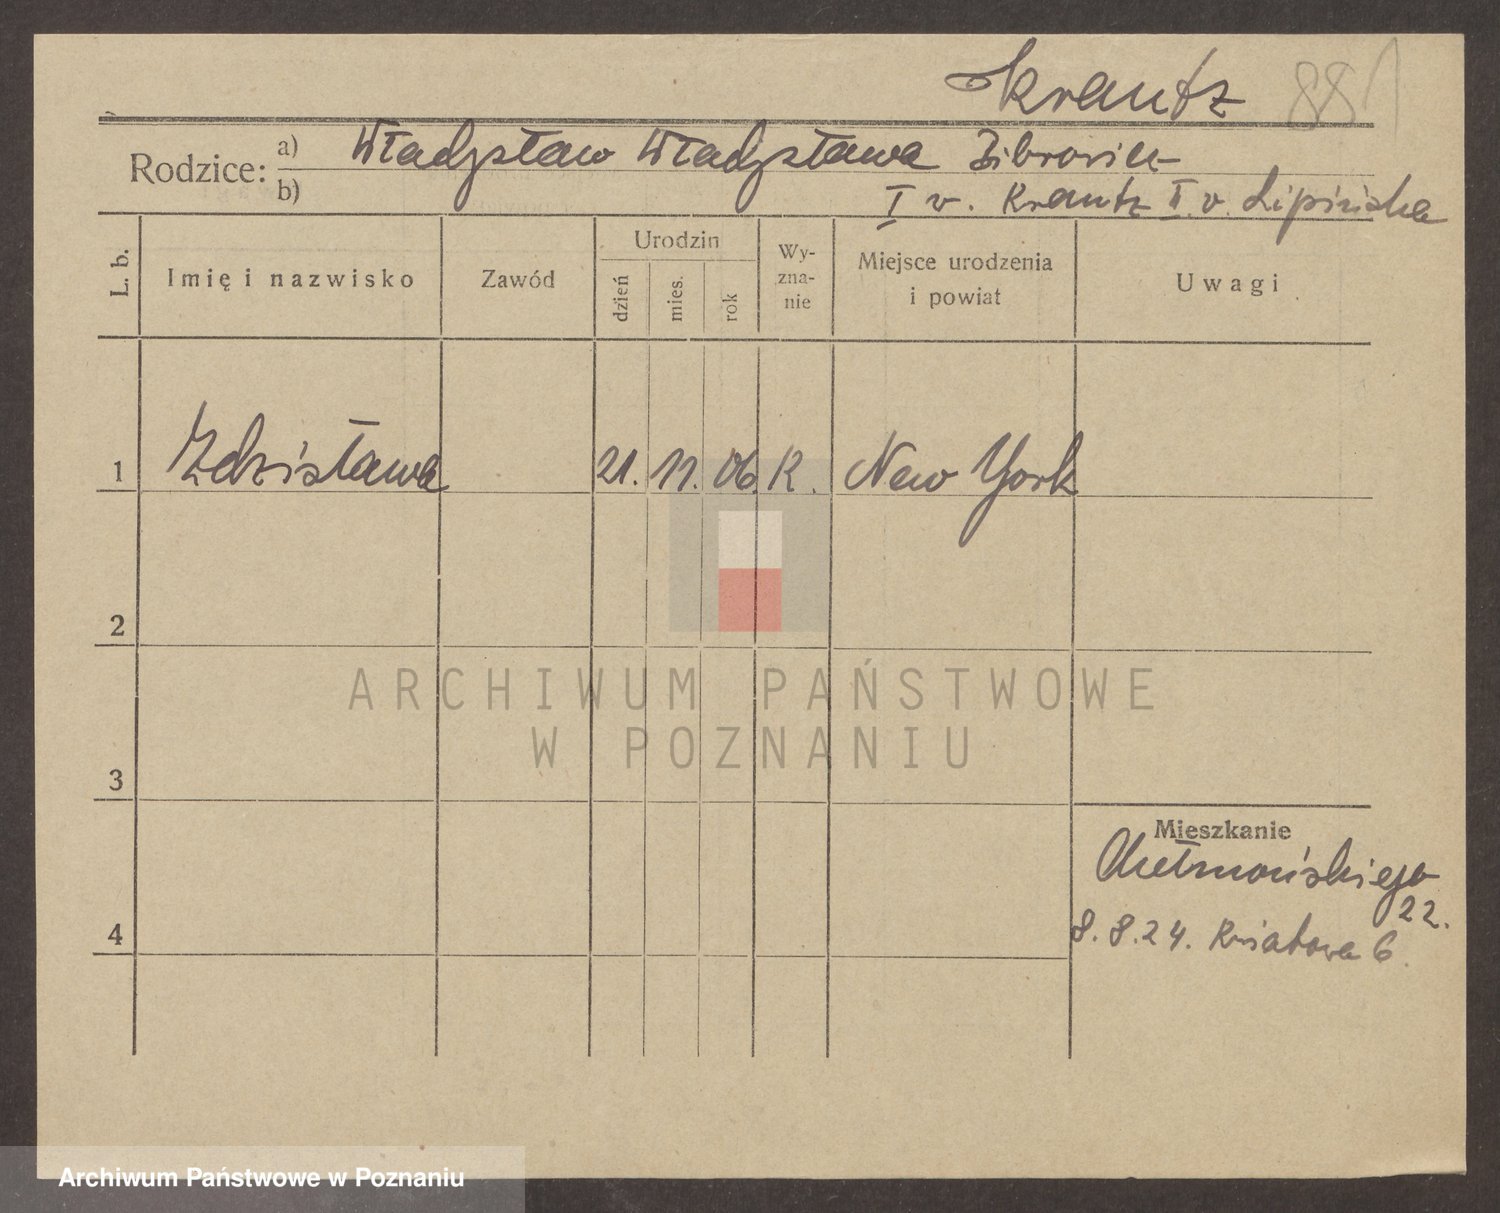 Krantz 881
Rodzice: a) Władysław Władysława
b) I v. Krantz II. v. Lipińska
L. b.
Imię i nazwisko
Zawód
Urodzin
dzień
mies.
rok
Wy-
zna-
nie
Miejsce urodzenia
i powiat
Uwagi
1 Zdzisława 21. 11. 06. K. New York
2
3
4
Mieszkanie
Chełmońskiego
22.
8. 8. 24. Kwiatowa 6.
ARCHIWUM PAŃSTWOWE
W POZNANIU
Archiwum Państwowe w Poznaniu